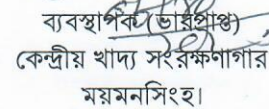 ব্যবস্থাপক (ভারপ্রাপ্ত)
কেন্দ্রীয় খাদ্য সংরক্ষণাগার
ময়মনসিংহ।